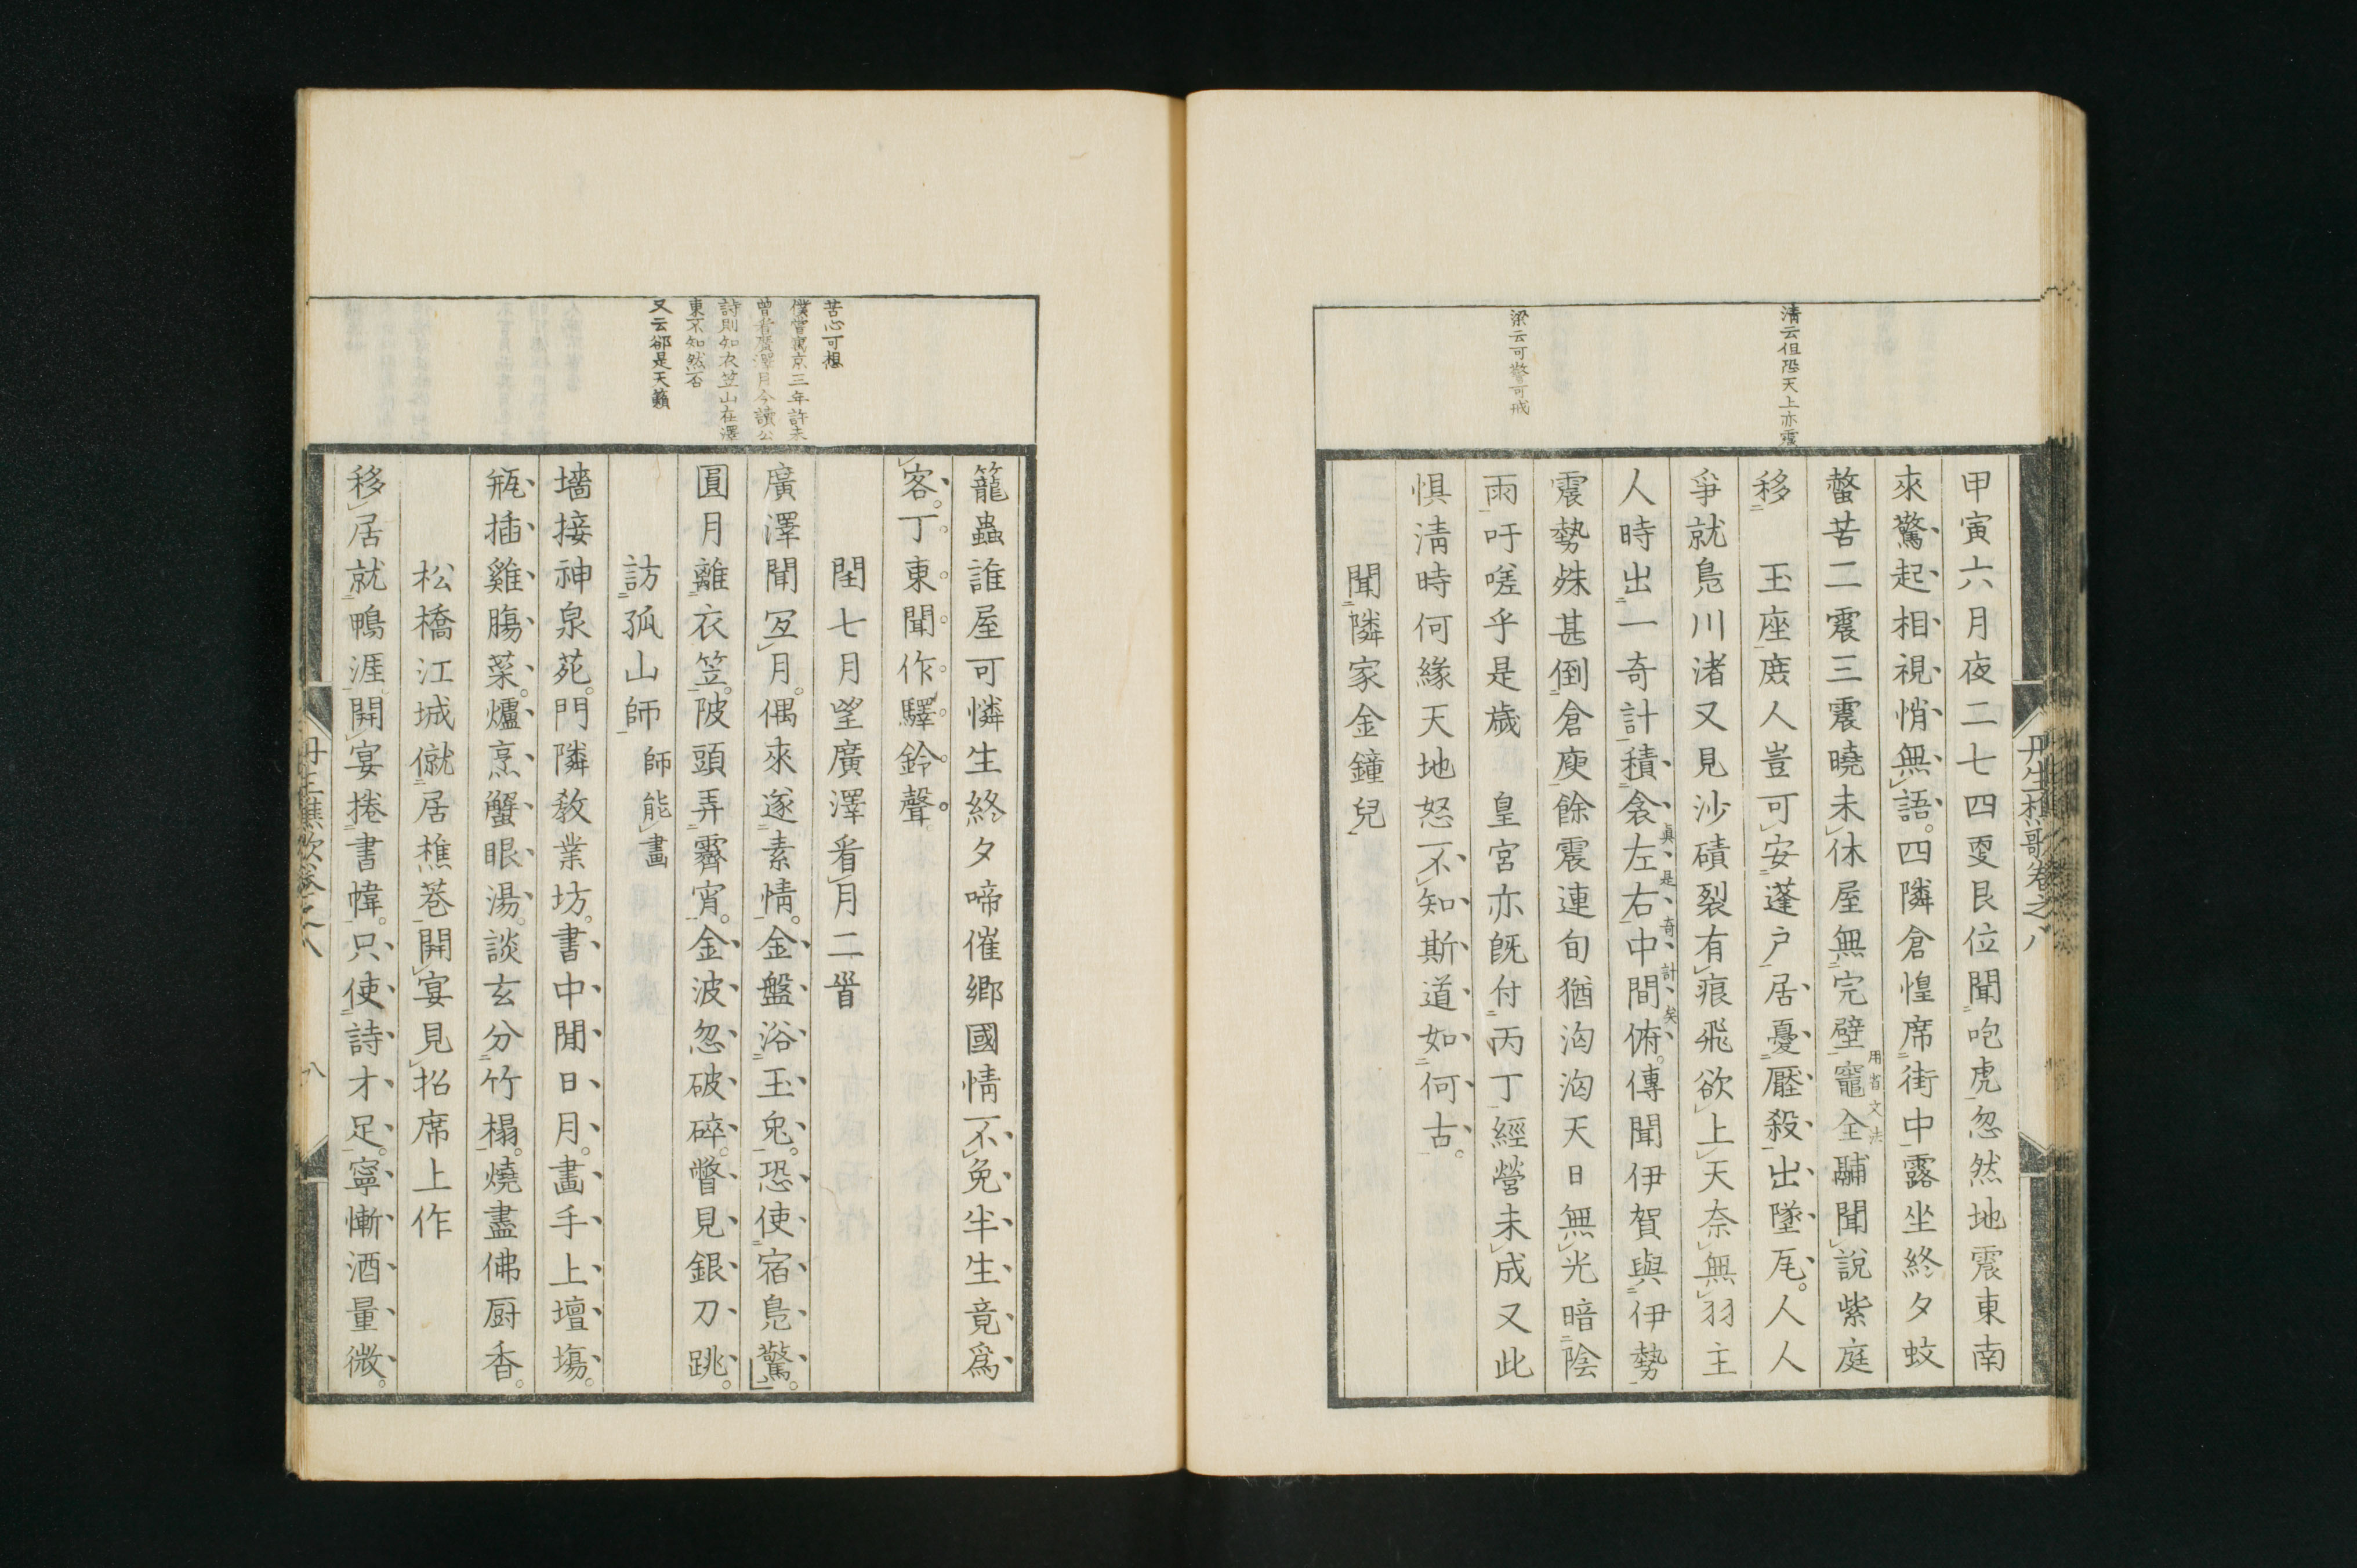 丹生樵歌卷之八
清云但恐天上亦震
梁云可警可戒
甲寅六月夜二七四更艮位聞咆虎忽然地震東南
來驚起相視悄無語四隣倉惶席街中露坐終夕蚊
螫苦二震三震曉未休屋無完壁竈全鬴聞說紫庭
用省文法
移　玉座庶人豈可安蓬戶居憂壓殺出墜瓦人人
爭就鳧川渚又見沙磧裂有痕飛欲上天奈無羽主
人時出一奇計積衾左右中間俯傳聞伊賀與伊勢
眞是奇計矣
震勢殊甚倒倉庾餘震連旬猶洶洶天日無光暗陰
雨吁嗟乎是歲　皇宮亦旣付丙丁經營未成又此
惧淸時何緣天地怒不知斯道如何古
聞隣家金鐘兒
苦心可想
僕嘗寓京三年許未
曾看廣澤月今讀公
詩則知衣笠山在澤
東不知然否
又云郤是天籟
籠蟲誰屋可憐生終夕啼催鄉國情不免半生竟爲
客丁東聞作驛鈴聲
閏七月望廣澤看月二首
廣澤聞冝月偶來遂素情金盤浴玉兎恐使宿鳧驚
圓月離衣笠陂頭弄霽宵金波忽破碎瞥見銀刀跳
訪孤山師師能畫
墻接神泉苑門隣敎業坊書中閒日月畫手上壇塲
瓶插雞膓菜爐烹蟹眼湯談玄分竹榻燒盡佛厨香
松橋江城僦居樵菴開宴見招席上作
移居就鴨涯開宴捲書幃只使詩才足寧慚酒量微
丹生樵歌卷之八
八